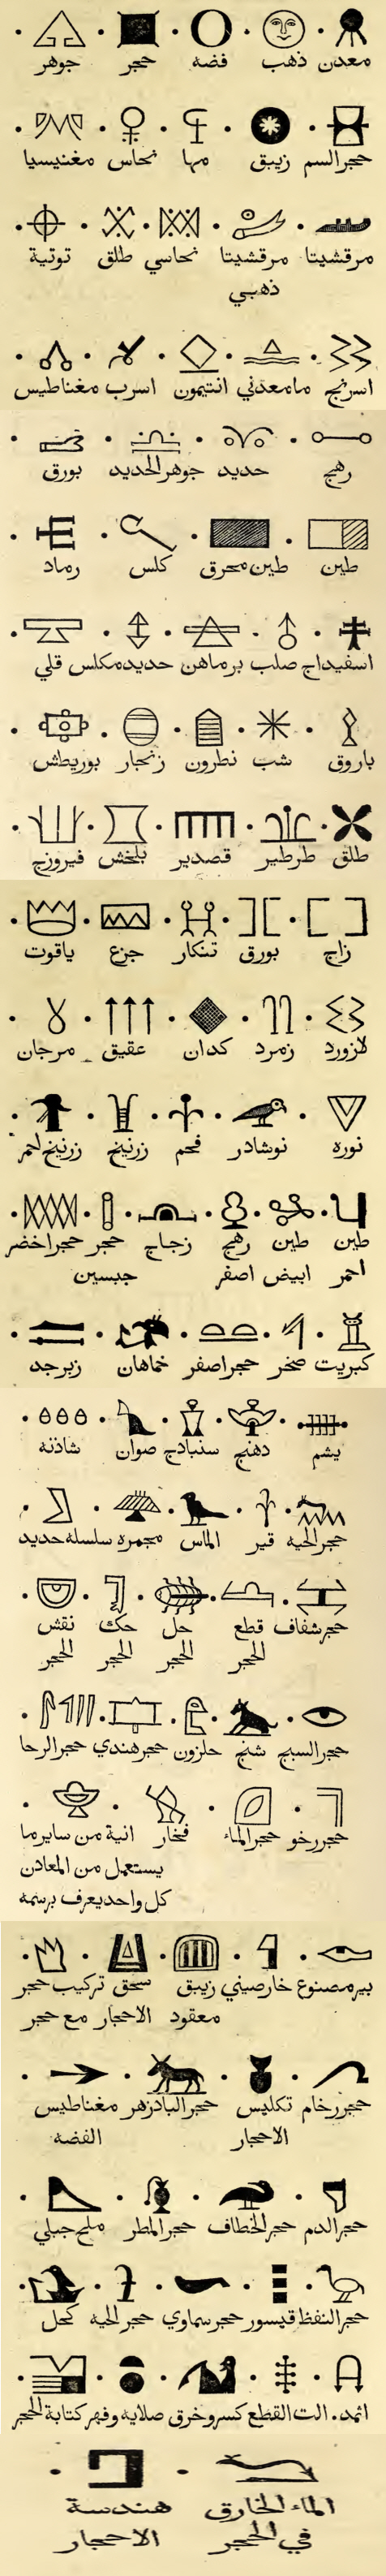 معدن ذهب فضه حجر جوهر
حجر السم زيبق مها نحاس مغنيسيا
مرقشيتا مرقشيتا نحاسي طلق توتية
ذهبي
اسرنج مامعدني انتيمون اسرب مغناطيس
رهج حديد جوهر الحديد بورق
طين طين محرق كلس رماد
اسفيداج صلب برماهن حديد مكلس قلي
باروق شب نطرون زنجار بوريطش
طلق طرطير قصدير بلخش فيروزج
زاج بورق تنكار جزع ياقوت
لازورد زمرد كدان عقيق مرجان
نوره نوشادر فحم زرنيخ زرنيخ احمر
طين طين رهج زجاج حجر حجر اخضر
احمر ابيض اصفر جبسين
كبريت صخر حجر اصفر خماهان زبرجد
يشم دهنج سنبادج صوان شاذنه
حجر الحيه قير الماس مجمره سلسله حديد
حجر شفاف قطع حل حك نقش
الحجر الحجر الحجر الحجر
حجر السبج شنج حلزون حجر هندي حجر الرحا
حجر رخو حجر الماء فخار انية من ساير ما
يستعمل من المعادن
كل واحد يعرف برسمه
بير مصنوع خارصيني زيبق سحق تركيب حجر
معقود الاحجار مع حجر
حجر رخام تكليس حجر البادزهر مغناطيس
الاحجار الفضه
حجر الدم حجر الخطاف حجر المطر ملح جبلي
حجر النفط قيسور حجر سماوي حجر الحيه كحل
اثمد. الت القطع كسر وخرق صلايه وفهر كتابة الحجر
الماء الخارق هندسة
في الحجر الاحجار